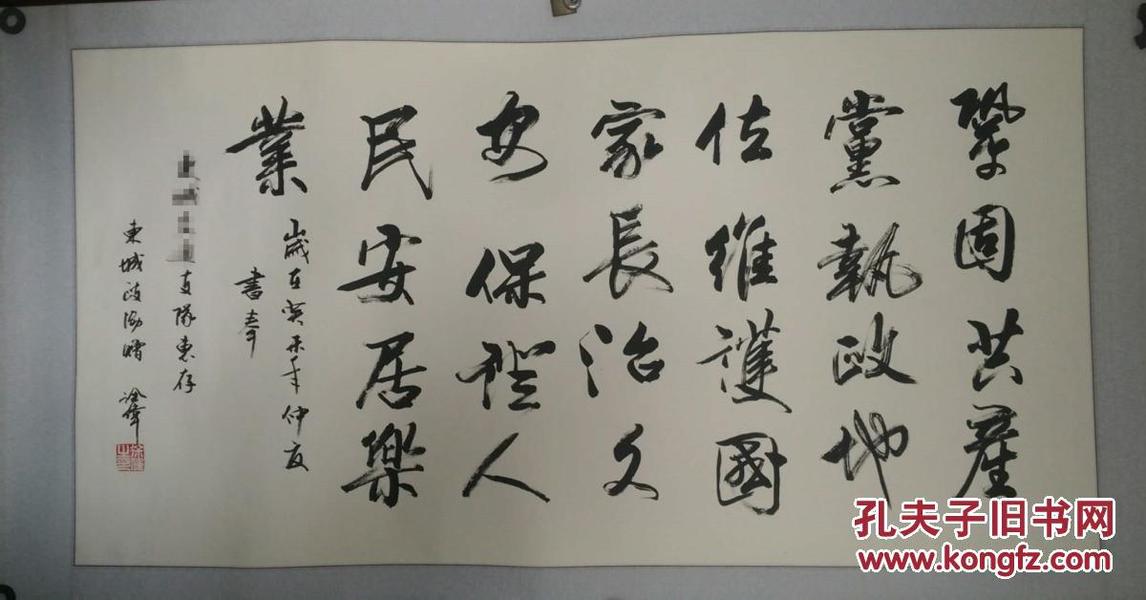 鞏固共産
黨執政地
位維護國
家長治久
安保證人
民安居樂
業
歲在癸未年仲夏
書奉
支隊惠存
東城政協贈
孔夫子旧书网
www.kongfz.com